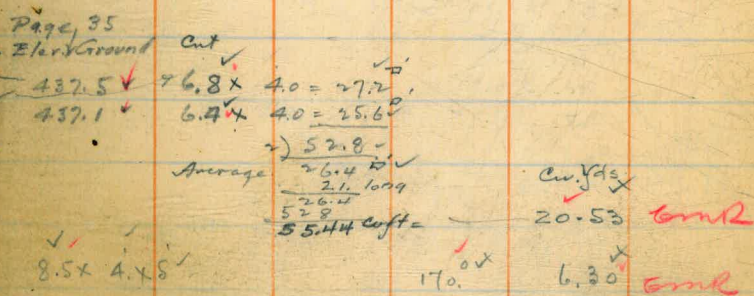 Page, 35
Elev. Ground Cut
437.5 6.8 x 4.0 = 27.2 □'
437.1 6.4 x 4.0 = 25.6
2) 52.8
Average 26.4 □' Cu. Yds
21. long
26.4
528
55.44 Cuft = 20.53 EMR
8.5 x 4. x 5 170.0 6.30 EMR